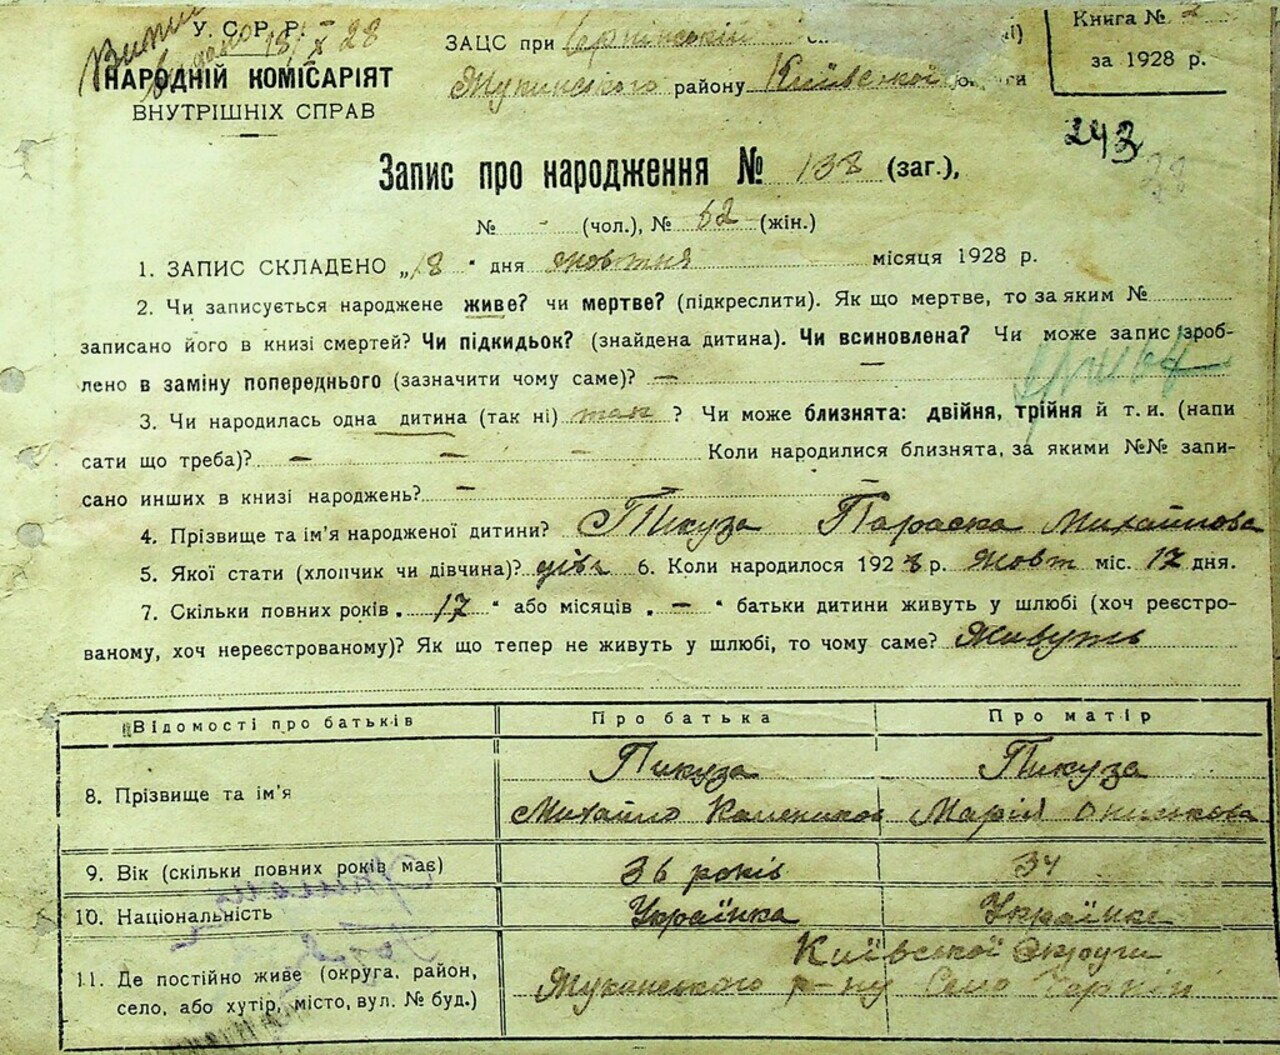 У. С. Р. Р.
18/X 28
НАРОДНІЙ КОМІСАРІЯТ
ВНУТРІШНІХ СПРАВ
ЗАЦС при
району Київської
Книга №
за 1928 р.
243
Запис про народження № 138 (заг.),
№ - (чол.), № 62 (жін.)
1. ЗАПИС СКЛАДЕНО „18" дня жовтня місяця 1928 р.
2. Чи записується народжене живе? чи мертве? (підкреслити). Як що мертве, то за яким №
записано його в книзі смертей? Чи підкидьок? (знайдена дитина). Чи всиновлена? Чи може запис зроб-
лено в заміну попереднього (зазначити чому саме)? — —
3. Чи народилась одна дитина (так ні) так ? Чи може близнята: двійня, трійня й т. и. (напи
сати що треба)? — — — Коли народилися близнята, за якими №№ запи-
сано инших в книзі народжень? — —
4. Прізвище та ім'я народженої дитини? Пикуза Параска Михайлова
5. Якої стати (хлопчик чи дівчина)? дівч 6. Коли народилося 1928 р. Жовт міс. 17 дня.
7. Скільки повних років „ 17 " або місяців „ — " батьки дитини живуть у шлюбі (хоч реєстро-
ваному, хоч нереєстрованому)? Як що тепер не живуть у шлюбі, то чому саме? Живуть
Відомості про батьків Про батька Про матір
8. Прізвище та ім'я Пикуза Пикуза
Михайло Марія
9. Вік (скільки повних років має) 36 років 34
10. Національність Українка Українка
11. Де постійно живе (округа, район,
село, або хутір, місто, вул. № буд.)
Київської Округи
р-ну Село